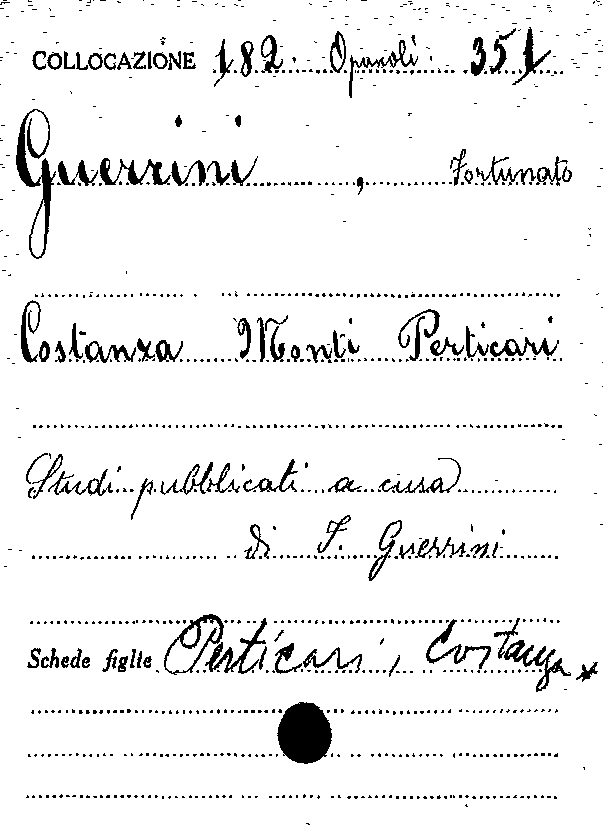 COLLOCAZIONE 182. Opuscoli. 351
Guerrini , Fortunato
Costanza Monti Perticari
Studi pubblicati a cura
di F. Guerrini
Schede figlie Perticari, Costanza